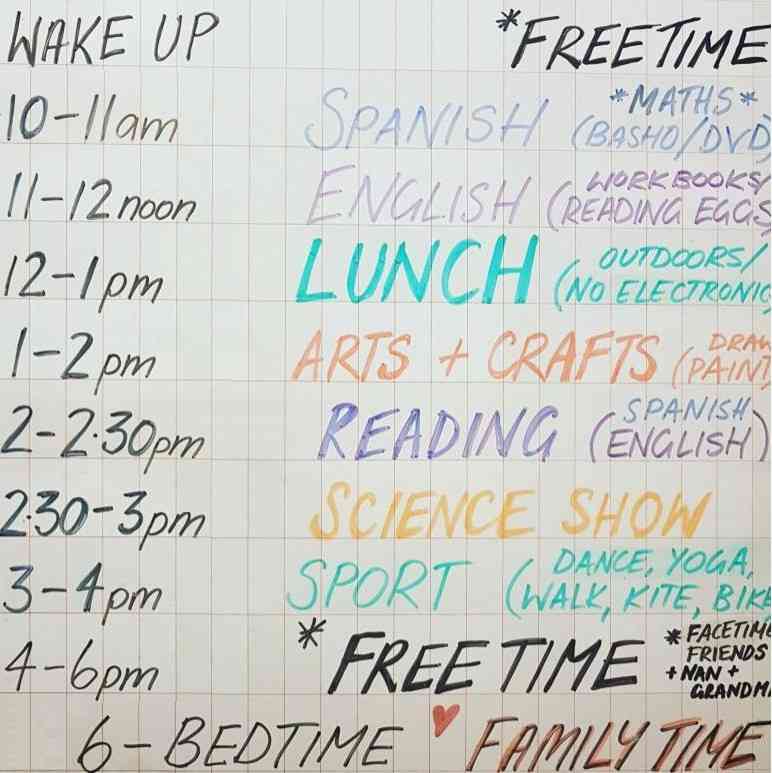 WAKE UP *FREETIME
10-11am SPANISH *MATHS* (BASHO/DVD)
11-12noon ENGLISH (WORKBOOKS/ READING EGGS
12-1pm LUNCH (OUTDOORS/ NO ELECTRONIC
1-2pm ARTS + CRAFTS (DRAW PAINT
2-2.30pm READING (SPANISH ENGLISH)
2.30-3pm SCIENCE SHOW
3-4pm SPORT (DANCE, YOGA, WALK, KITE, BIKE
4-6pm *FREE TIME *FACETIME FRIENDS +NAN + GRANDMA
6-BEDTIME ♥ FAMILY TIME